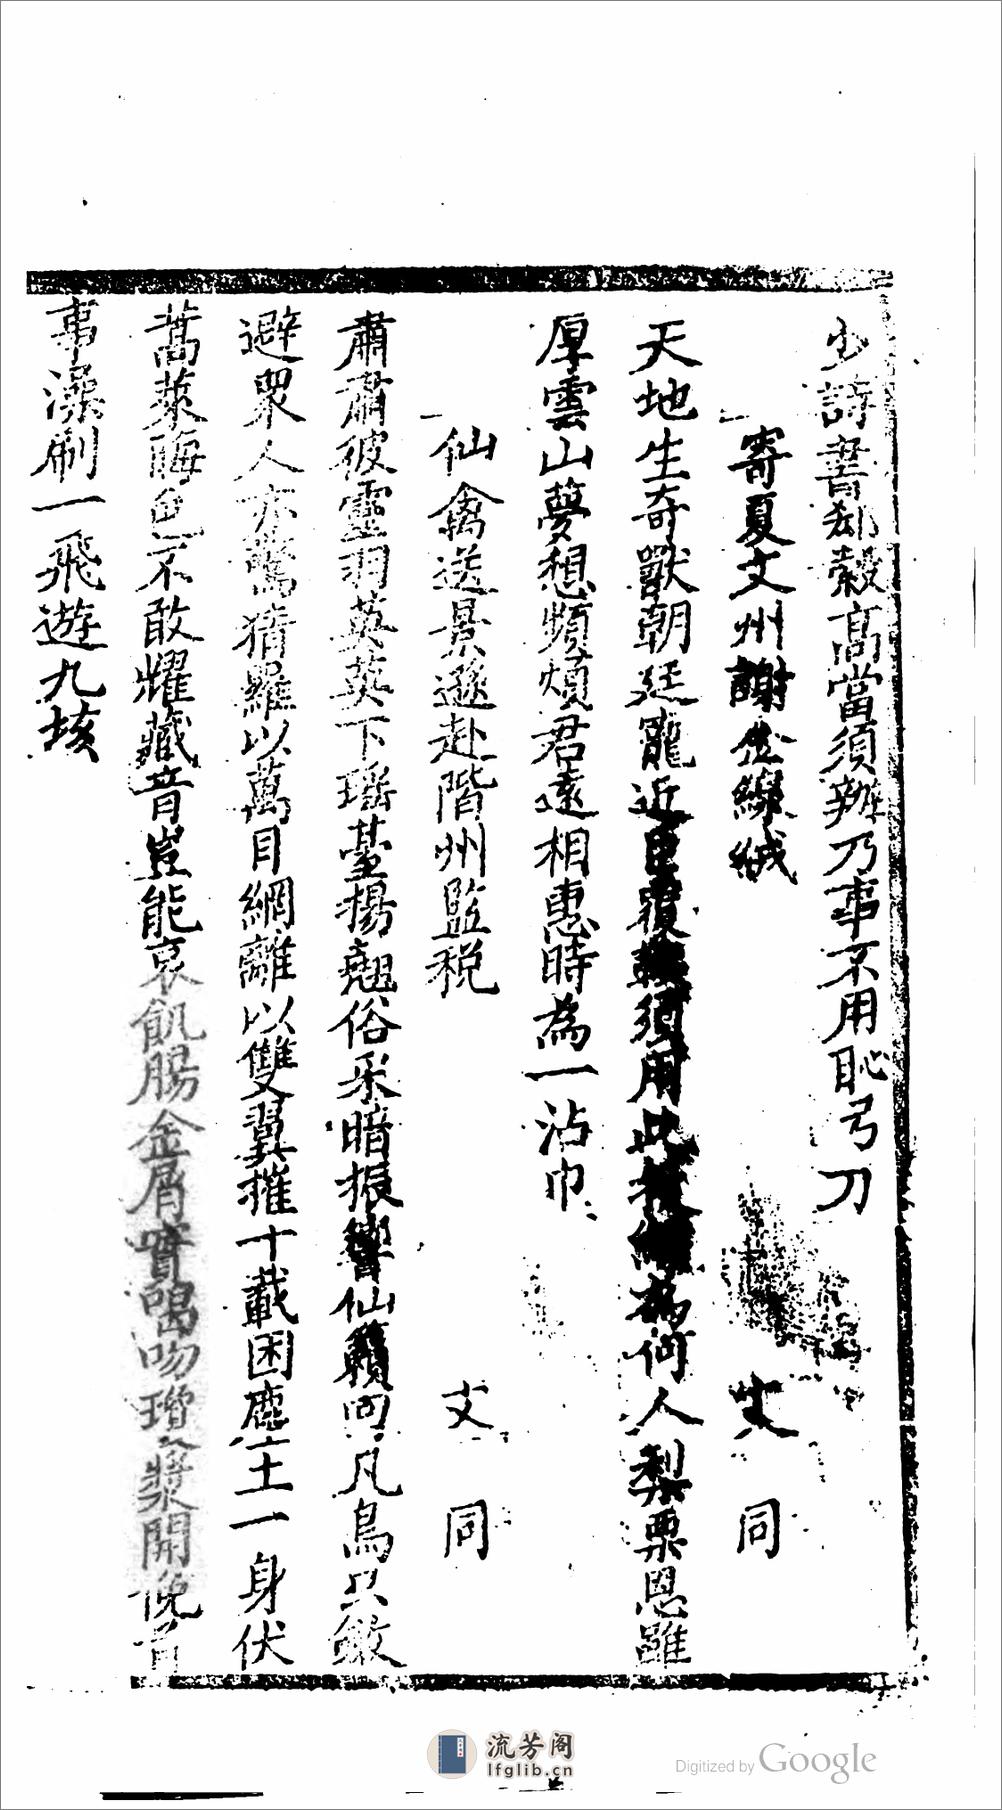 少詩書郤縠高當須辦乃事不用恥弓刀
寄夏文州謝金線絨 文同
天地生奇獸朝廷寵近臣覆鞍須用此 為何人梨栗恩雖
厚雲山夢想頻煩君遠相惠時為一沾巾
仙禽送景遜赴階州監税 文同
肅肅彼靈羽英英下瑶臺揚翹俗采暗振響仙籟回凡鳥只斂
避眾人亦驚猜羅以萬目網離以雙翼摧十載困塵土一身伏
蒿萊晦色不敢耀藏音豈能哀飢腸金屑實喝吻瓊漿開俛首
事澡刷一飛遊九垓
流芳阁
lfglib.cn
Digitized by Google